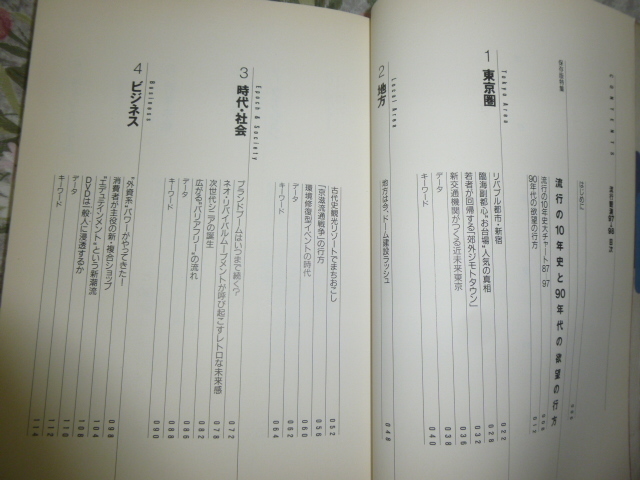 CONTENTS
流行観測97-98 目次
はじめに
保存版特集
流行の10年史と90年代の欲望の行方
流行の10年史大チャート87-97
90年代の欲望の行方
012
1 東京圏
Tokyo Area
リバブル都市・新宿
022
臨海副都心“お台場”人気の真相
026
若者が回帰する「郊外ジモトタウン」
032
新交通機関がつくる近未来東京
036
データ
038
キーワード
040
2 地方
Local Area
地方は今、ドーム建設ラッシュ
048
古代史観光リゾートでまちおこし
052
「京滋流通戦争」の行方
056
環境修復型イベントの時代
060
データ
062
キーワード
064
3 時代・社会
Epoch & Society
ブランドブームはいつまで続く?
072
ネオ・リバイバルムーブメントが呼び起こすレトロな未来感
078
次世代シニアの誕生
082
広がる“バリアフリー”の流れ
086
データ
088
キーワード
090
4 ビジネス
Business
“外資系”パワーがやってきたー
098
消費者が主役の新・複合ショップ
104
“エデュテインメント”という新潮流
108
DVDは一般人に浸透するか
110
データ
112
キーワード
114